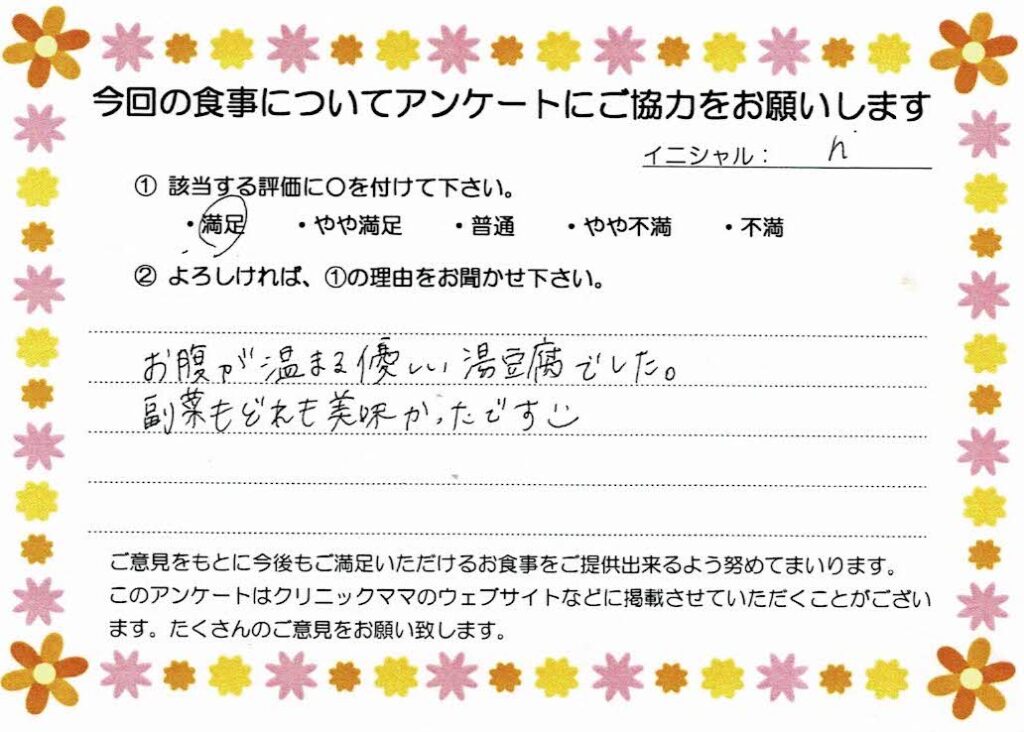 今回の食事についてアンケートにご協力をお願いします
イニシャル： h
① 該当する評価に〇を付けて下さい。
・満足 ・やや満足 ・普通 ・やや不満 ・不満
② よろしければ、①の理由をお聞かせ下さい。
お腹が温まる優しい湯豆腐でした。
副菜もどれも美味かったです
ご意見をもとに今後もご満足いただけるお食事をご提供出来るよう努めてまいります。
このアンケートはクリニックママのウェブサイトなどに掲載させていただくことがござい
ます。たくさんのご意見をお願い致します。